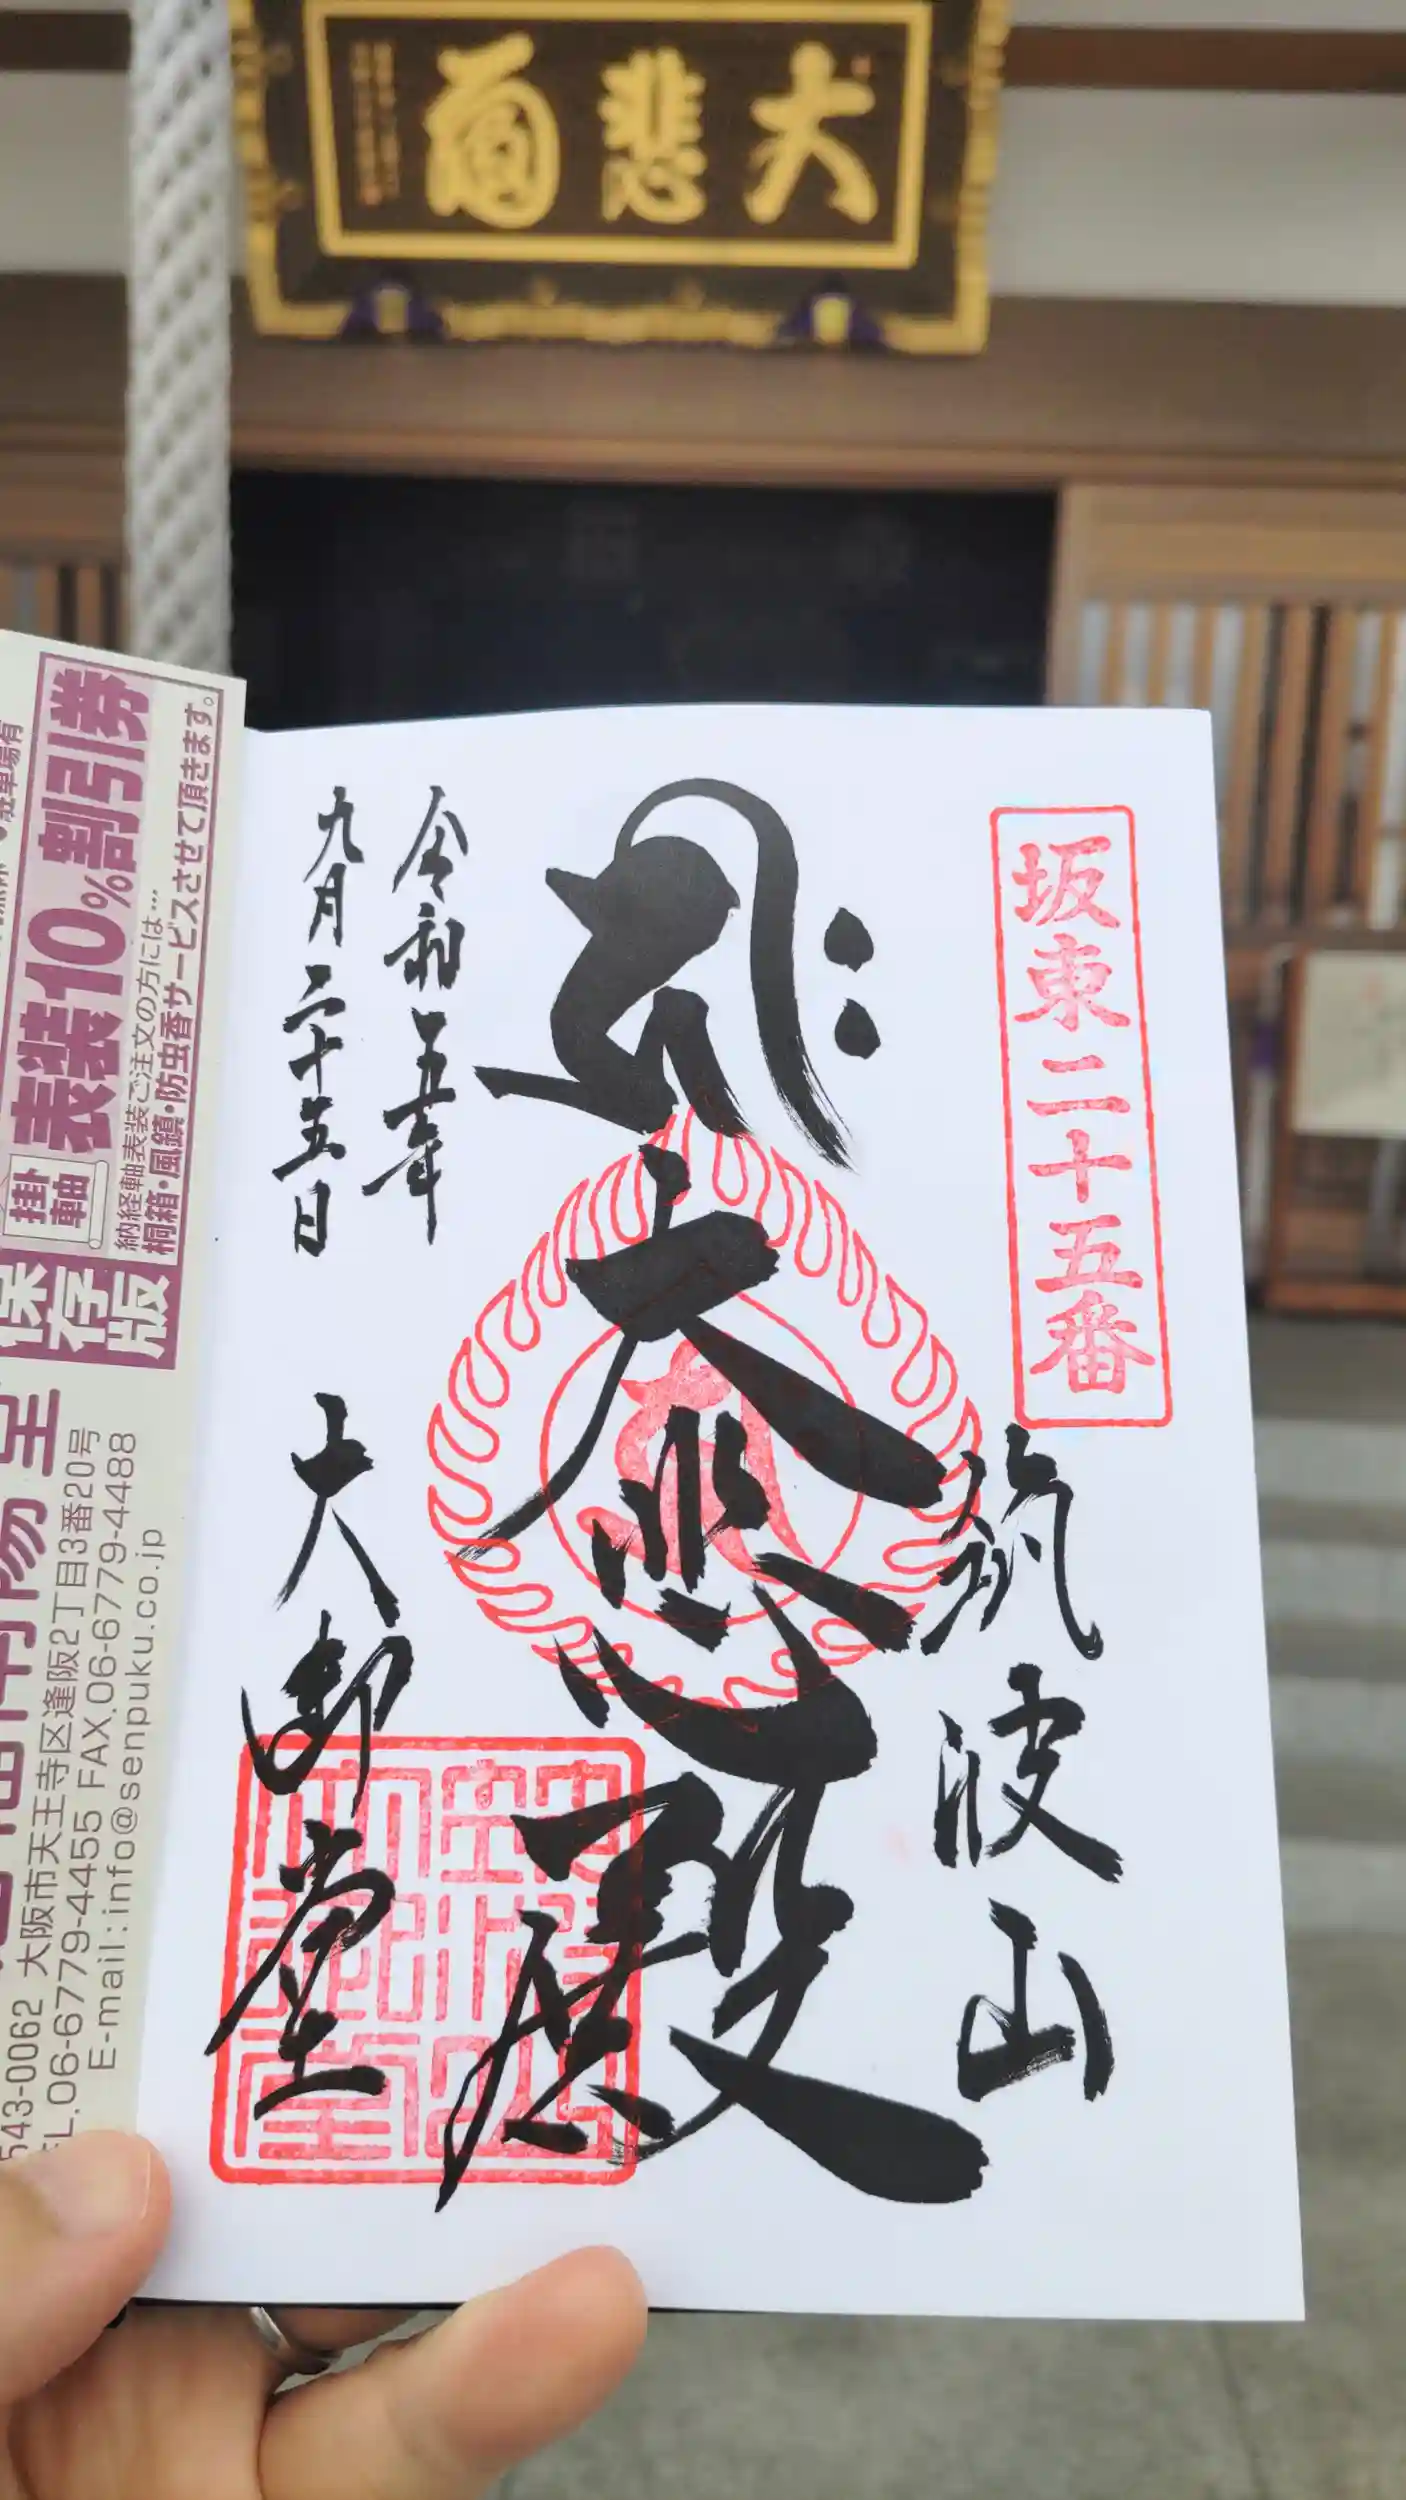 大悲閣
坂東二十五番
筑波山
大悲殿
令和五年
九月二十五日
大御堂
保存版
掛軸
表装10%割引券
納経軸表装ご注文の方には…
桐箱・風鎮・防虫香サービスさせて頂きます。
543-0062 大阪市天王寺区逢阪2丁目3番20号
TEL.06-6779-4455 FAX.06-6779-4488
E-mail:info@senpuku.co.jp